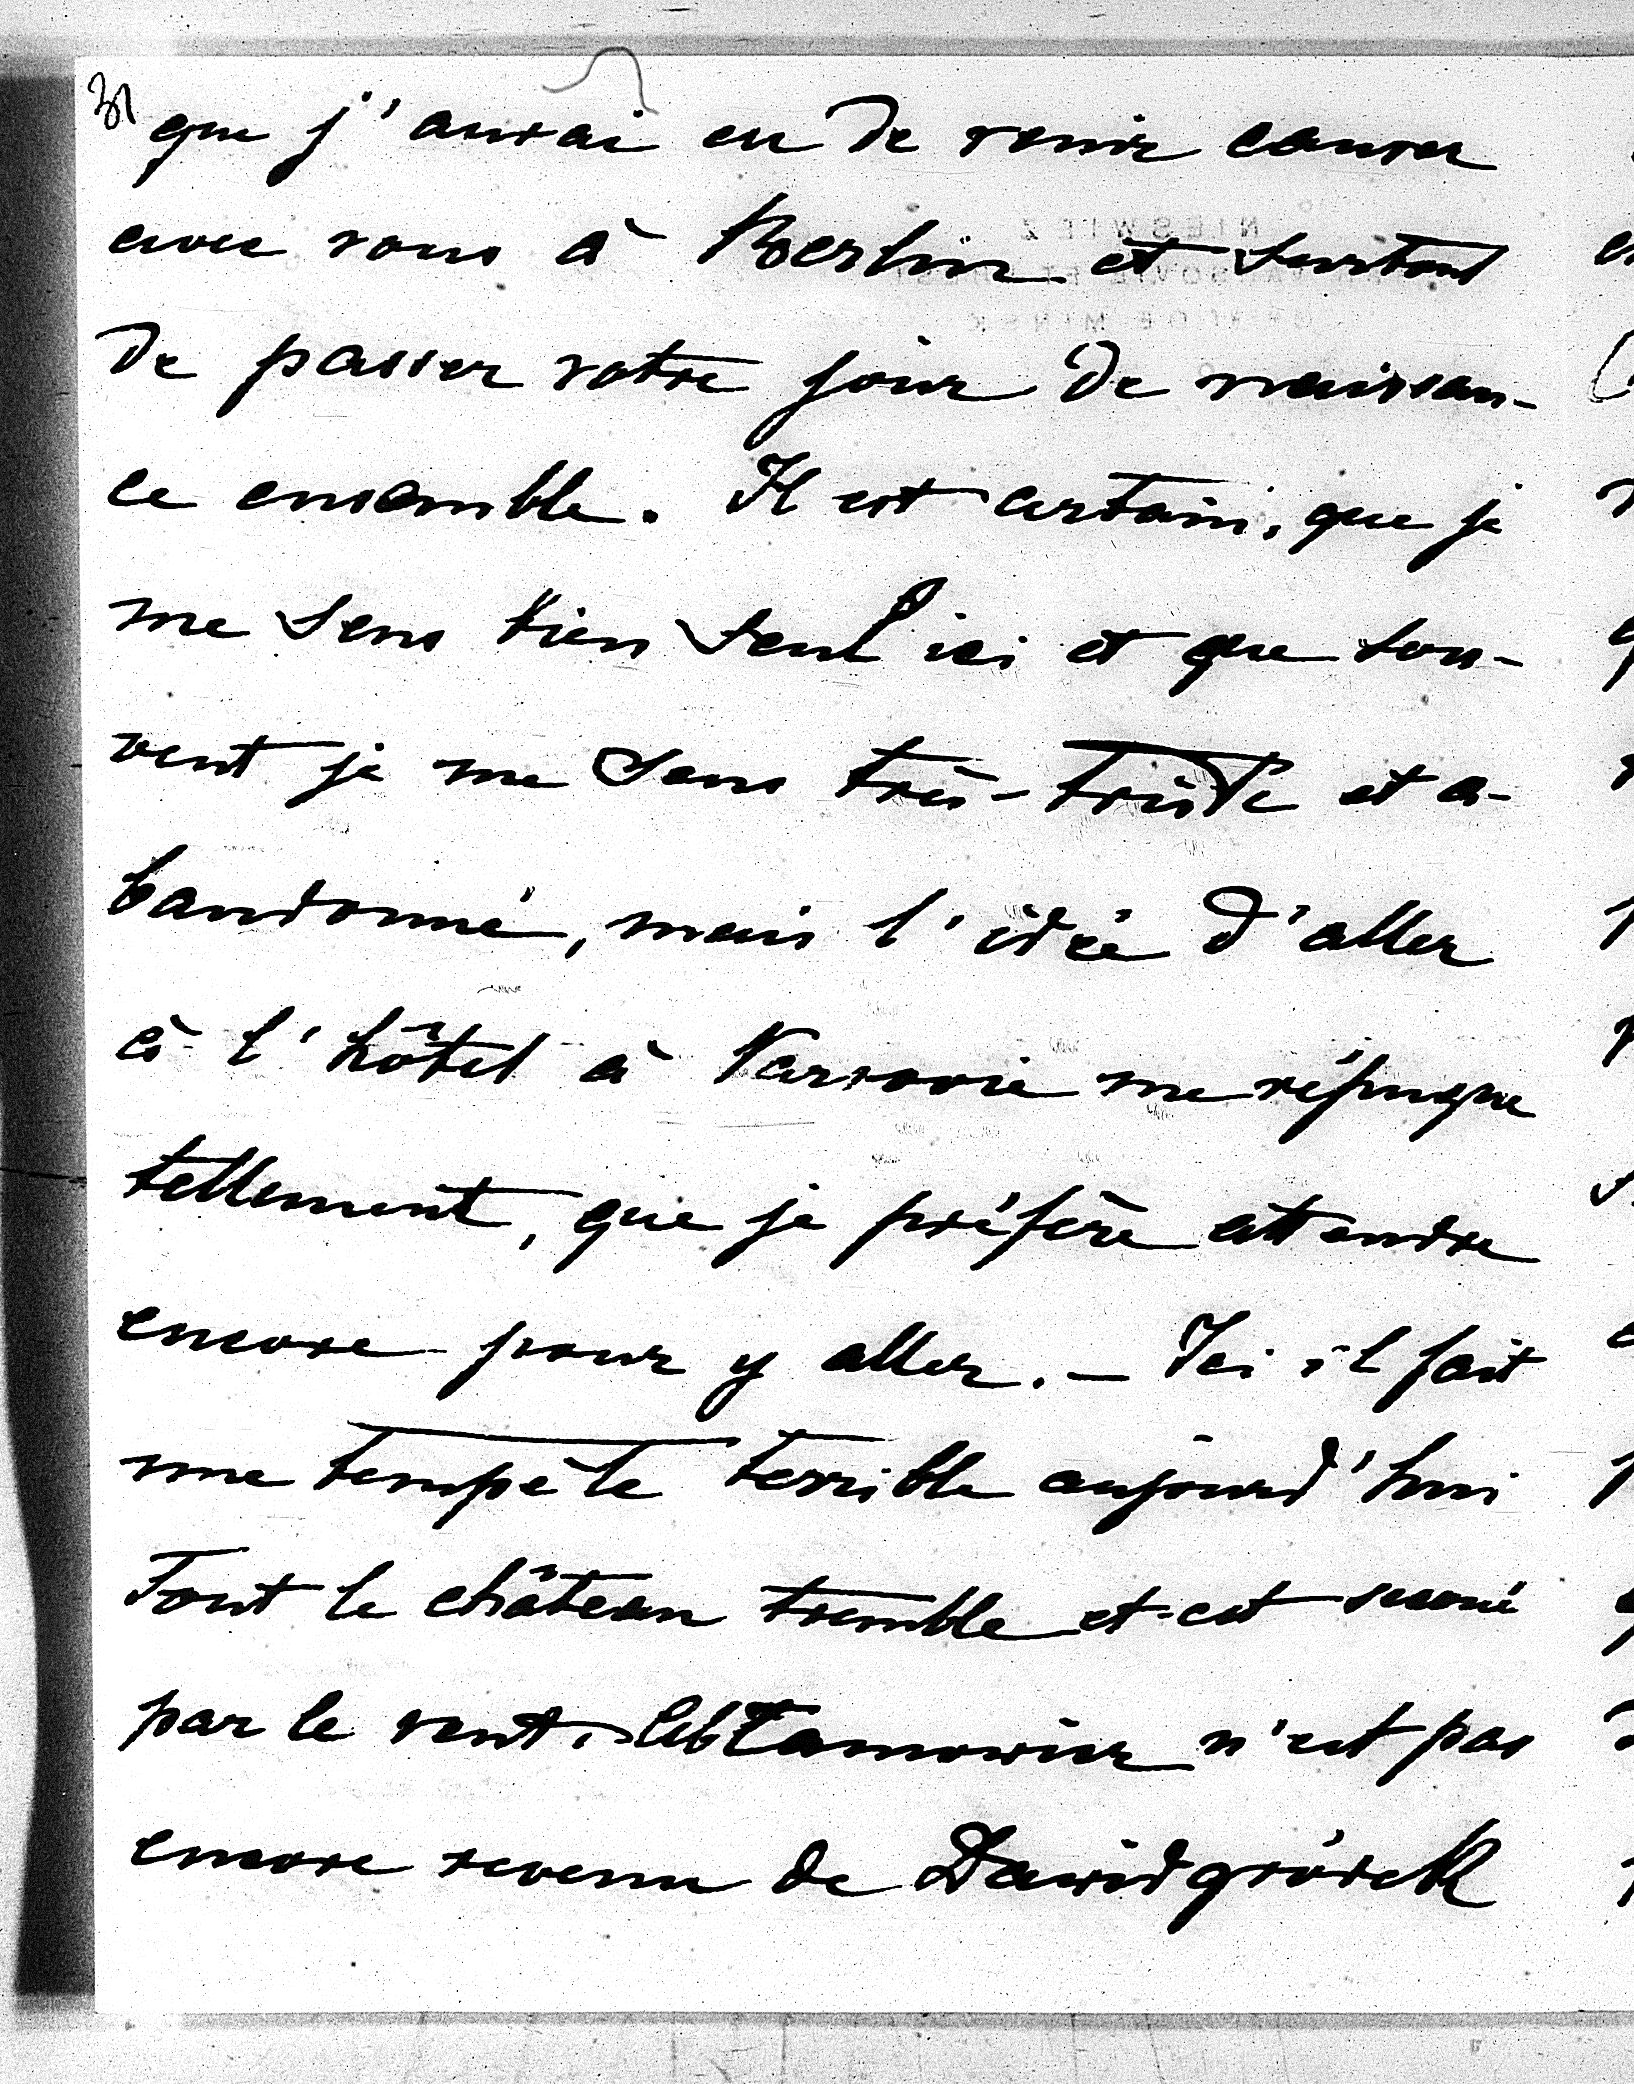 31 que j'aurai eu de venir causer
avec vous à Berlin et surtout
de passer votre jour de naissan-
ce ensemble. Il est certain, que je
me sens bien seul ici et que sou-
vent je me sens très-triste et a-
bandonné, mais l'idée d'aller
à l'hôtel à Varsovie me répugne
tellement, que je préfère attendre
encore pour y aller. — Ici il fait
une tempête terrible aujourd'hui
Tout le château tremble et est secoué
par le vent. n'est pas
encore revenu de Dawidgródek